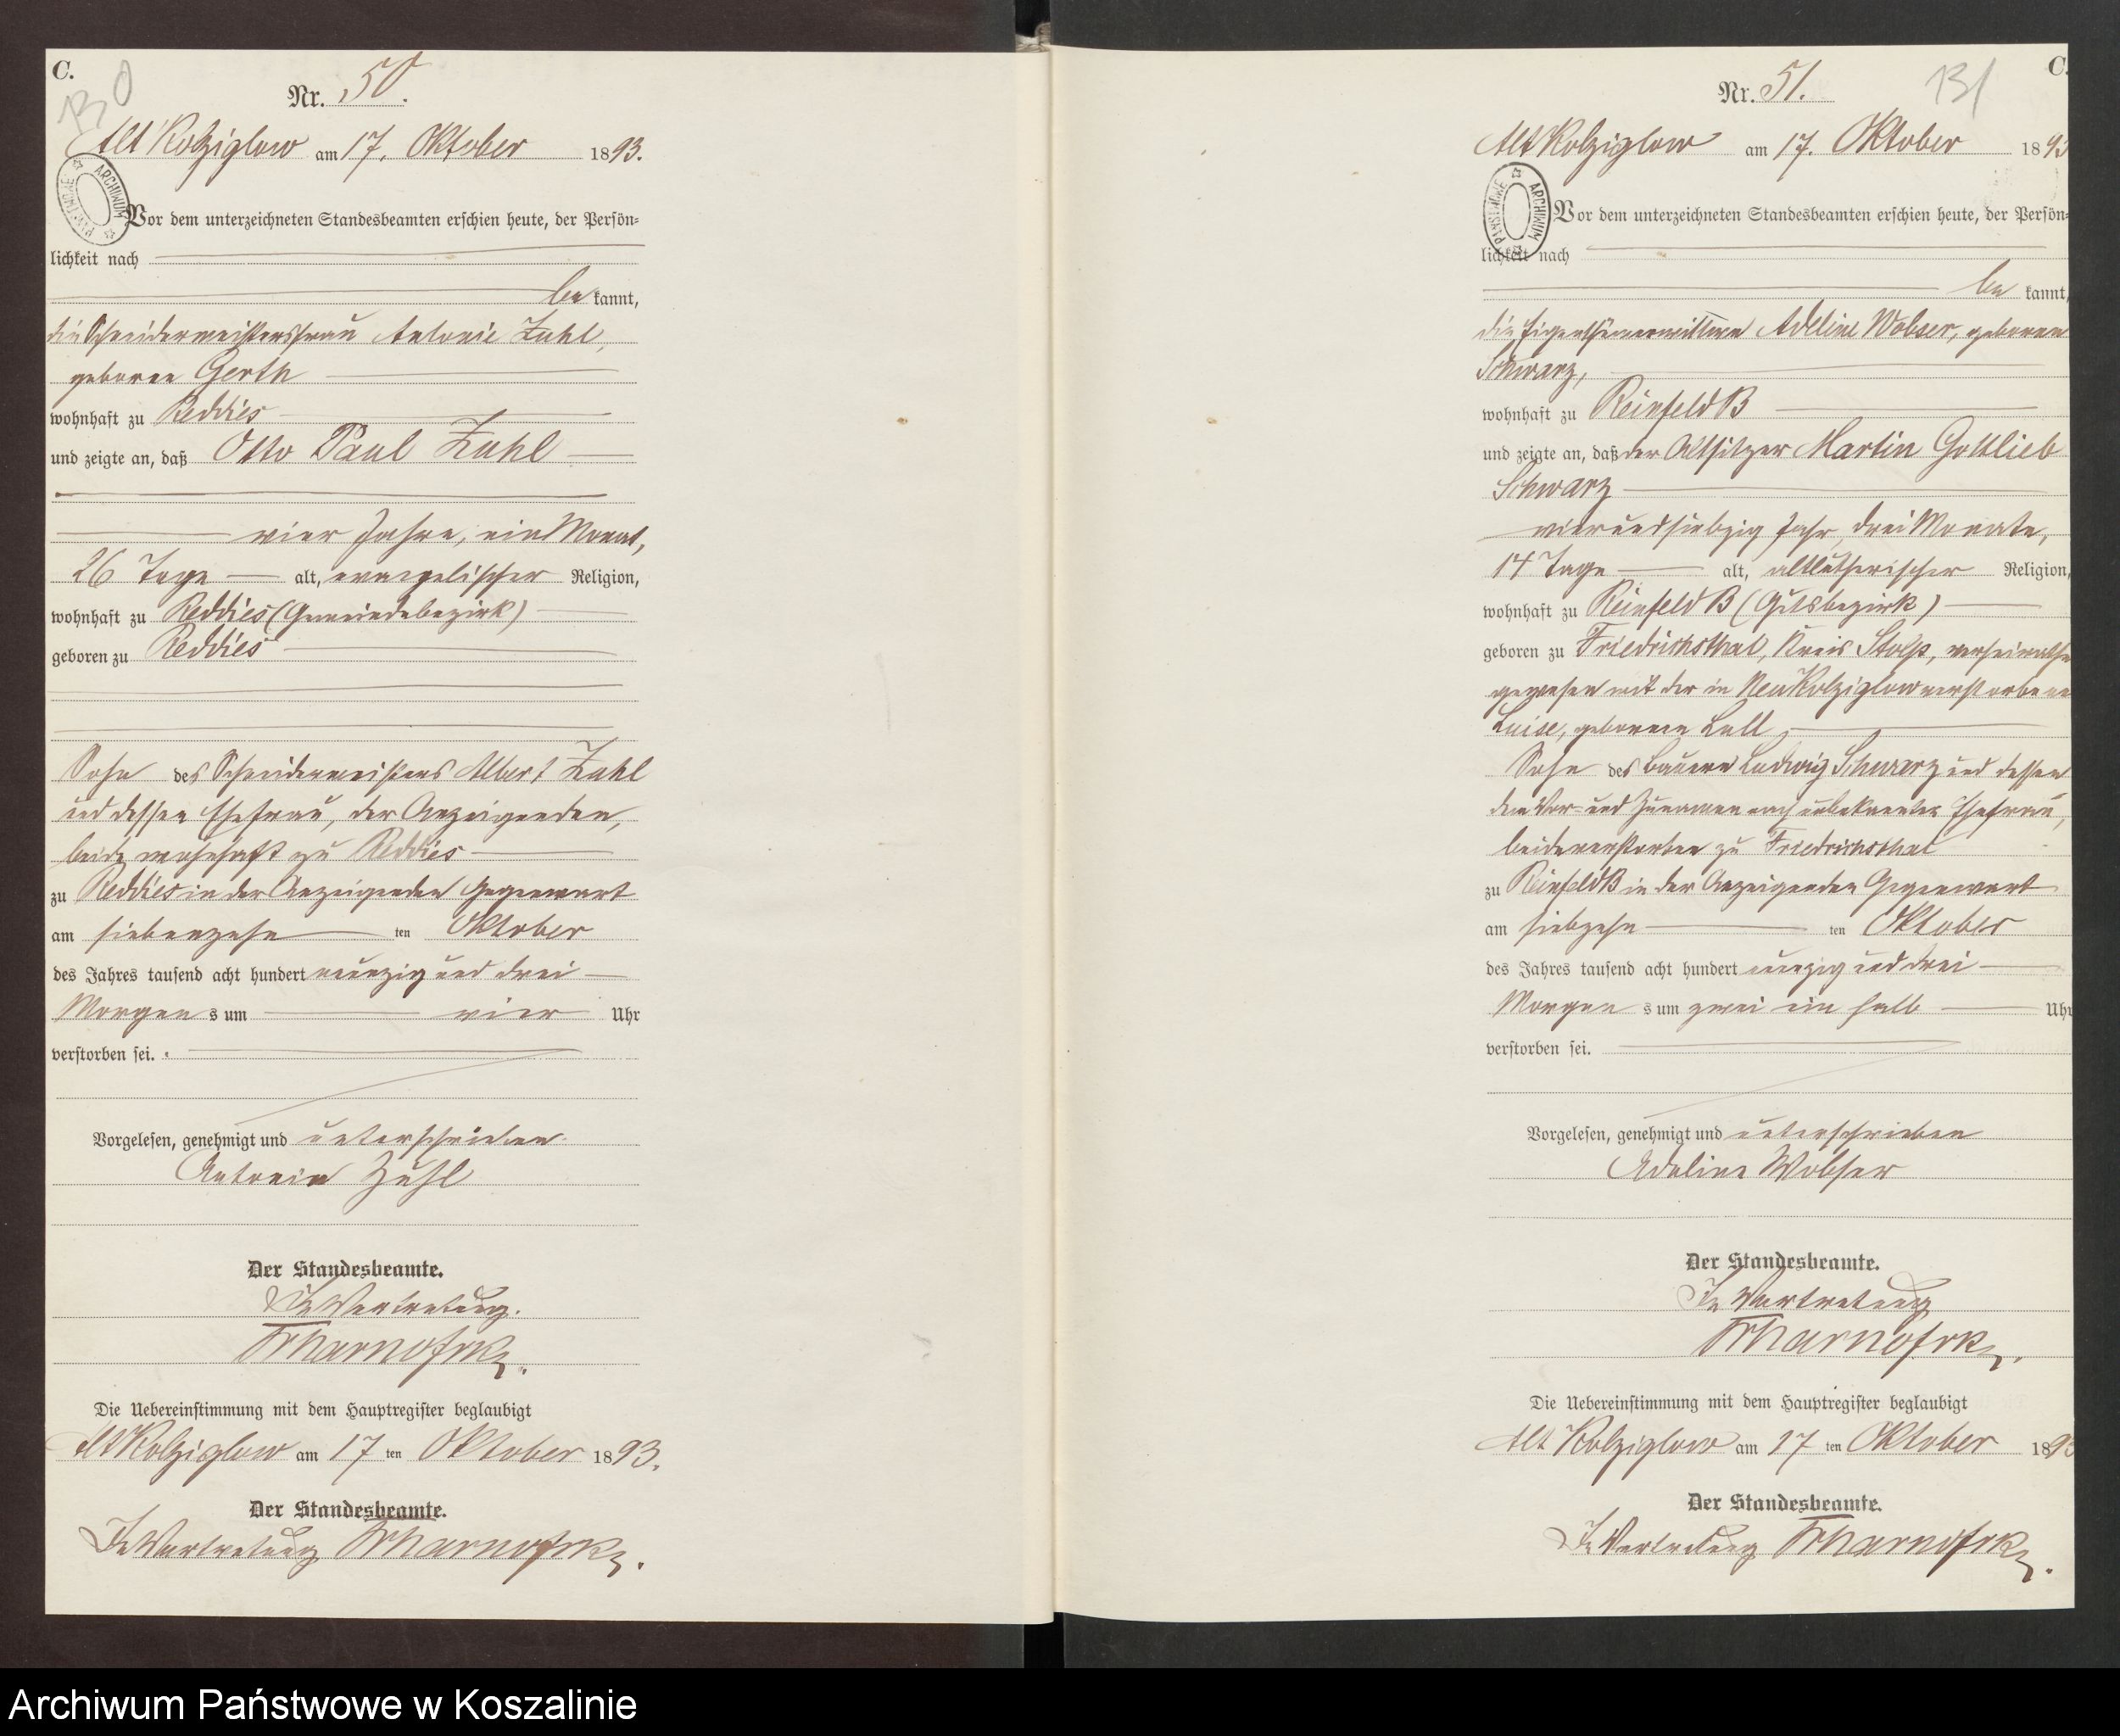 C.
130
Nr. 50.
Alt Kolziglow am 17. Oktober 1893.
ARCHIWUM PAŃSTWOWE
Vor dem unterzeichneten Standesbeamten erschien heute, der Persön-
lichkeit nach
be kannt,
die Schneidermeistersfrau Antonie Zuhl,
geborne Gerth
wohnhaft zu Reddies
und zeigte an, daß Otto Paul Zuhl
vier Jahre, ein Monat,
26 Tage alt, evangelischer Religion,
wohnhaft zu Reddies (Gemeindebezirk)
geboren zu Reddies
Sohn des Schneidermeisters Albert Zuhl
und dessen Ehefrau, der Anzeigenden,
beide wohnhaft zu Reddies
zu Reddies in der Anzeigenden Gegenwart
am siebenzehn ten Oktober
des Jahres tausend acht hundert neunzig und drei
Morgen s um vier Uhr
verstorben sei.
Vorgelesen, genehmigt und unterschrieben
Antonie Zuhl
Der Standesbeamte.
In Vertretung.
Die Uebereinstimmung mit dem Hauptregister beglaubigt
Alt Kolziglow am 17 ten Oktober 1893.
Der Standesbeamte.
In Vertretung
C.
131
Nr. 51.
Alt Kolziglow am 17. Oktober 1893
ARCHIWUM PAŃSTWOWE
Vor dem unterzeichneten Standesbeamten erschien heute, der Persön-
lichkeit nach
be kannt,
die Eigenthümerwittwe Adeline Wobser, geborene
Schwarz,
wohnhaft zu Reinfeld B
und zeigte an, daß der Altsitzer Martin Gottlieb
Schwarz
vierundsiebzig Jahr, drei Monate,
14 Tage alt, altlutherischer Religion,
wohnhaft zu Reinfeld B (Gutsbezirk)
geboren zu Friedrichsthal, Kreis Stolp, verheirathet
gewesen mit der in Neu Kolziglow verstorbenen
Luise, geborenen Lull
Sohn des Bauern Ludwig Schwarz und dessen
dem Vor- und Zunamen nach unbekannter Ehefrau,
beide verstorben zu Friedrichsthal
zu Reinfeld B in der Anzeigenden Gegenwart
am siebzehn ten Oktober
des Jahres tausend acht hundert neunzig und drei
Morgen s um zwei ein halb Uhr
verstorben sei.
Vorgelesen, genehmigt und unterschrieben
Adeline Wobser
Der Standesbeamte.
In Vertretung
Die Uebereinstimmung mit dem Hauptregister beglaubigt
Alt Kolziglow am 17 ten Oktober 1893
Der Standesbeamte.
In Vertretung
Archiwum Państwowe w Koszalinie